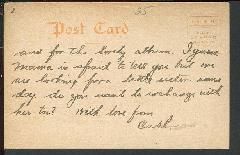 2
25
Post Card
and for the lovely album. I guess
Mama is afraid to tell you but we
are looking for a baby sister some
day. Do you want to exchange with
her too? With love from